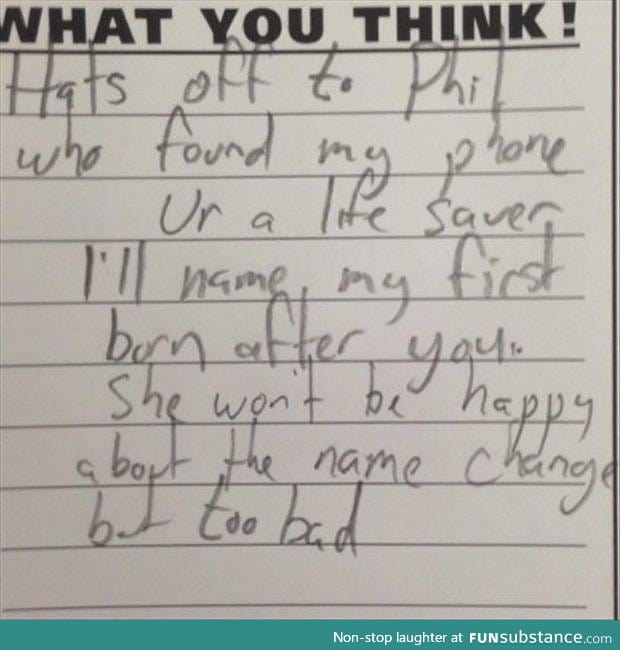 WHAT YOU THINK!
Hats off to Phil
who found my phone
Ur a life saver
I'll name my first
born after you.
She won't be happy
about the name change
but too bad
Non-stop laughter at FUNsubstance.com